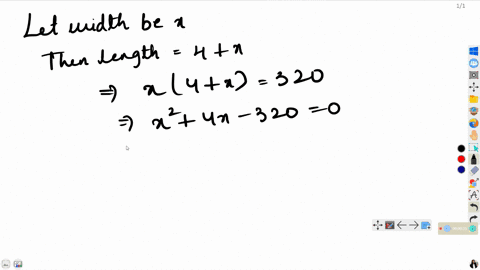 1/1
Let width be x
Then length = 4 + x
⇒ x(4+x) = 320
⇒ x² + 4x - 320 = 0